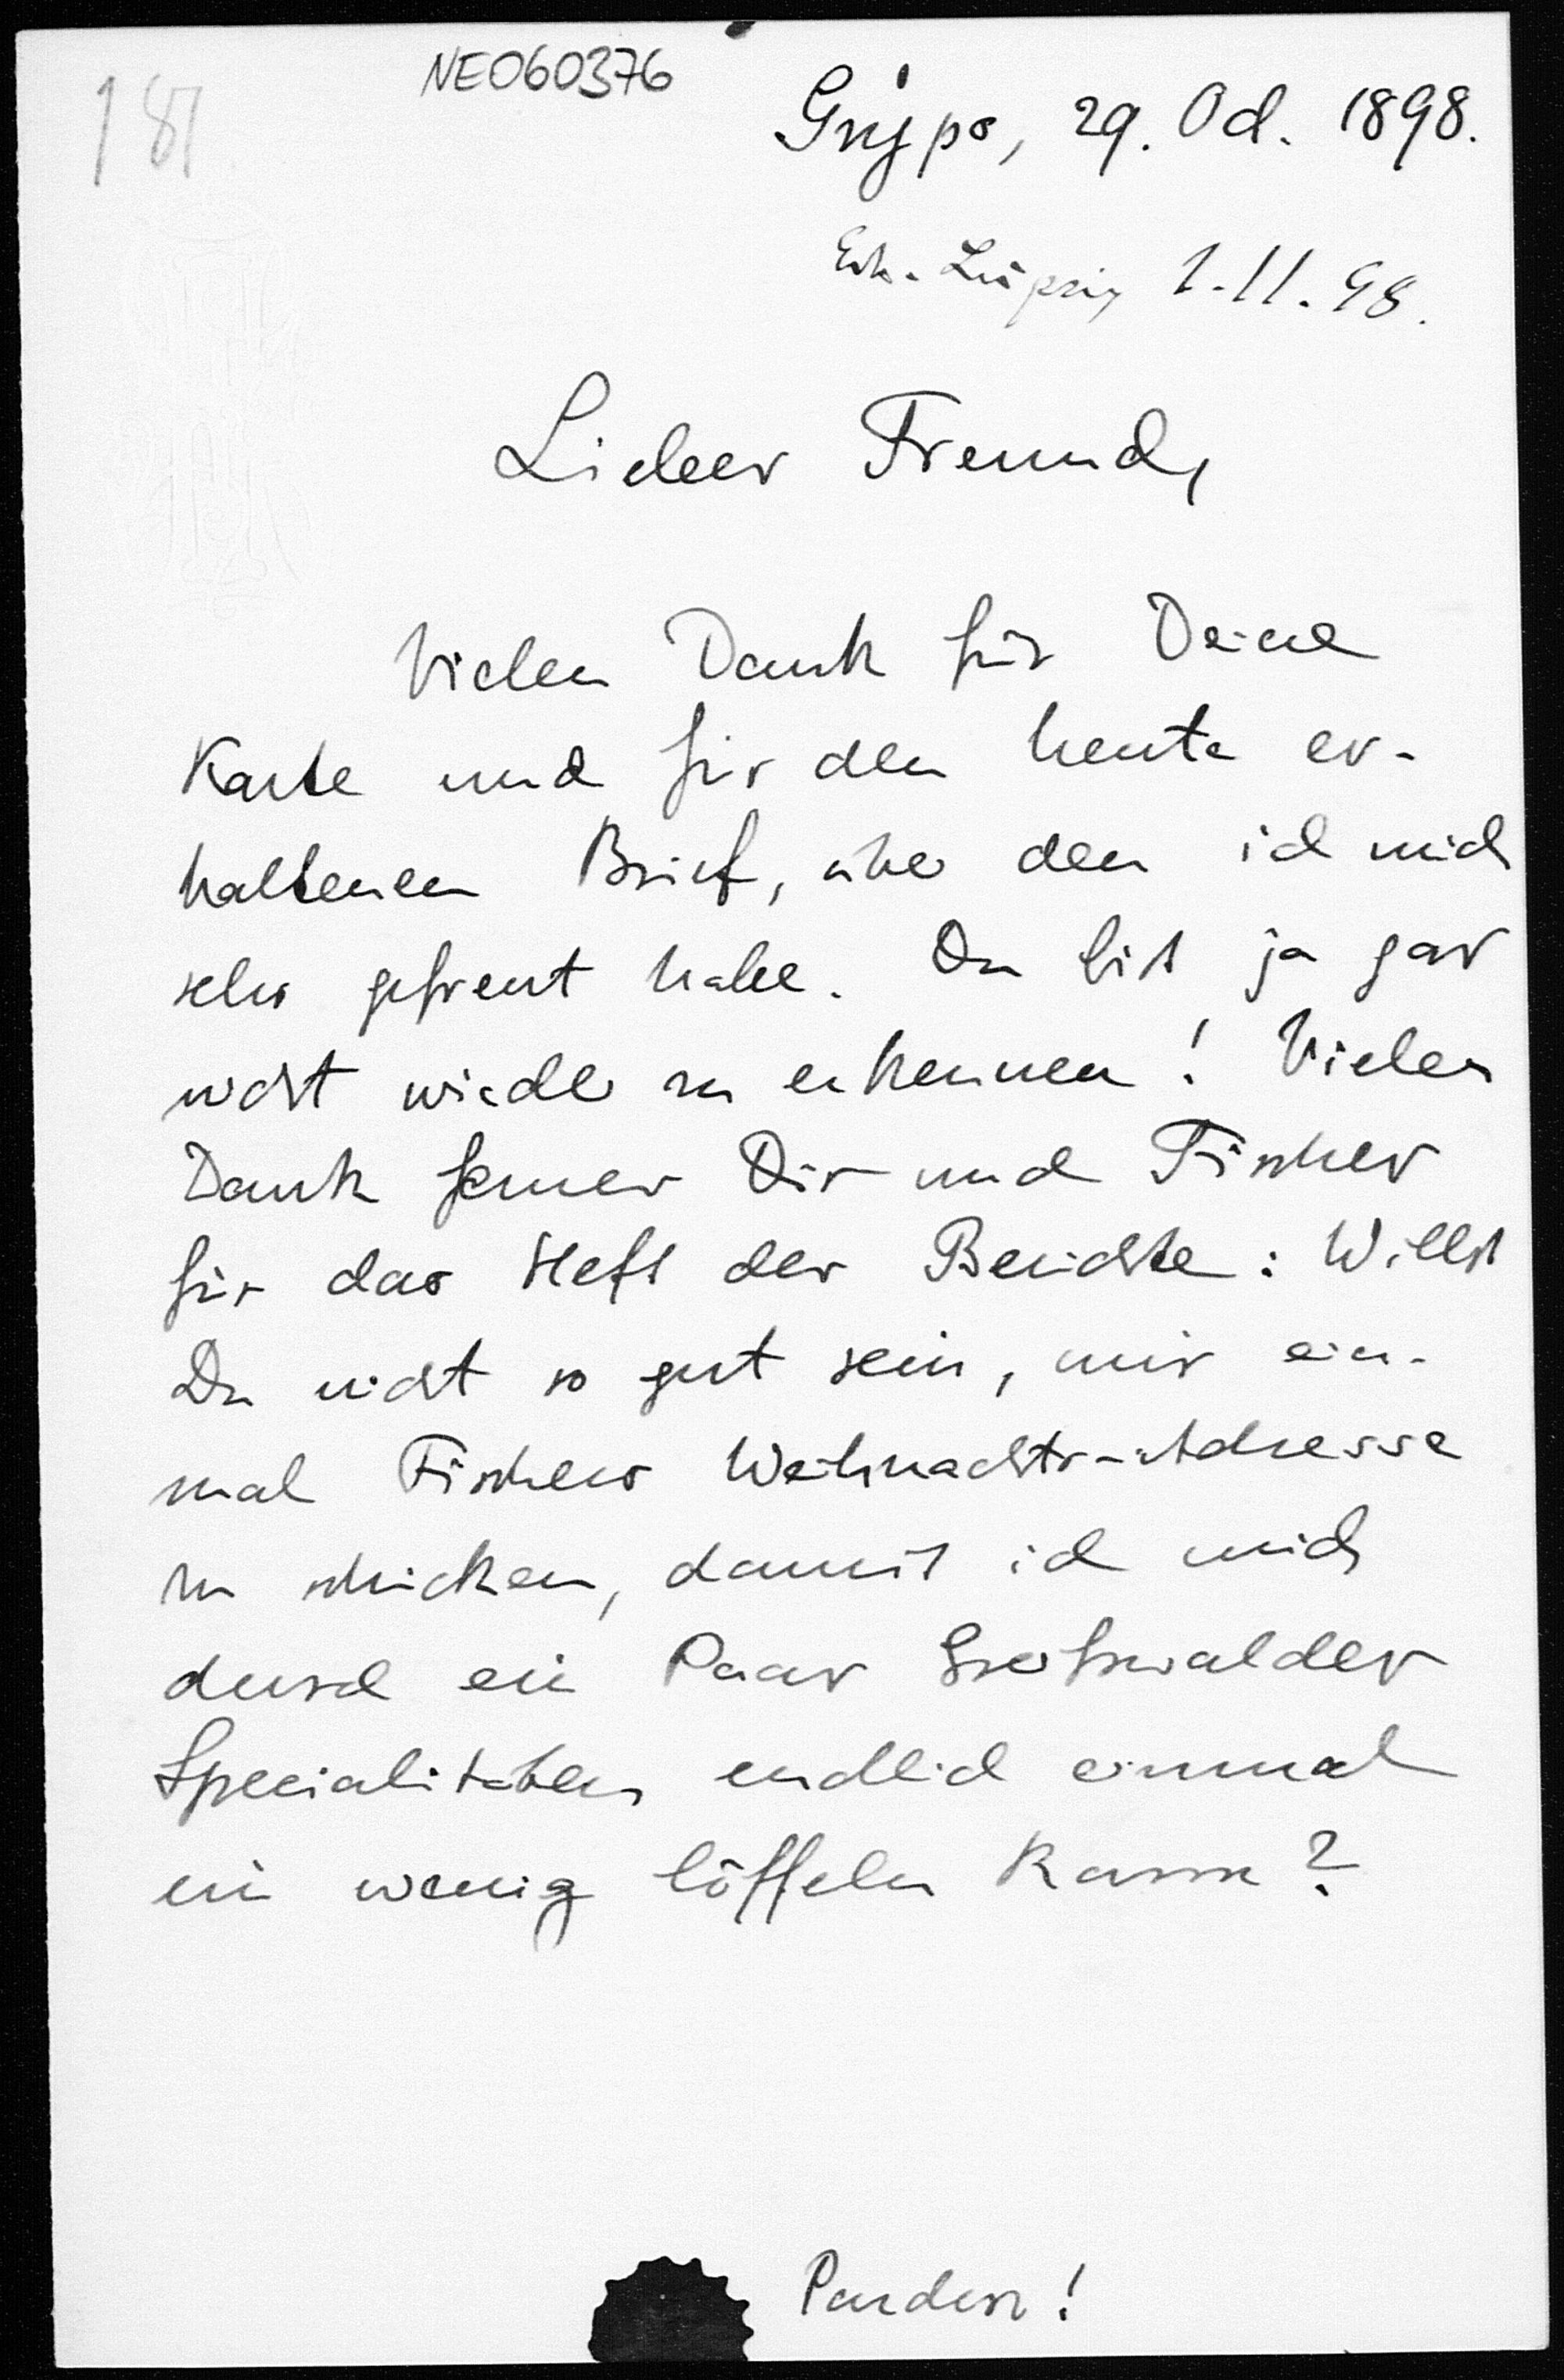 NE060376
181
Gryps, 29. Oct. 1898.
Erh. Leipzig 1.11.98.
Lieber Freund,
Vielen Dank für Deine
Karte und für den heute er-
haltenen Brief, über den ich mich
sehr gefreut habe. Du bist ja gar
nicht wieder zu erkennen! Vielen
Dank ferner Dir und Fischer
für das Heft der Berichte: Willst
Du nicht so gut sein, mir ein-
mal Fischers Weihnachts-Adresse
zu schicken, damit ich mich
durch ein Paar Greifswalder
Specialitäten endlich einmal
ein wenig löffeln kann?
Pardon!